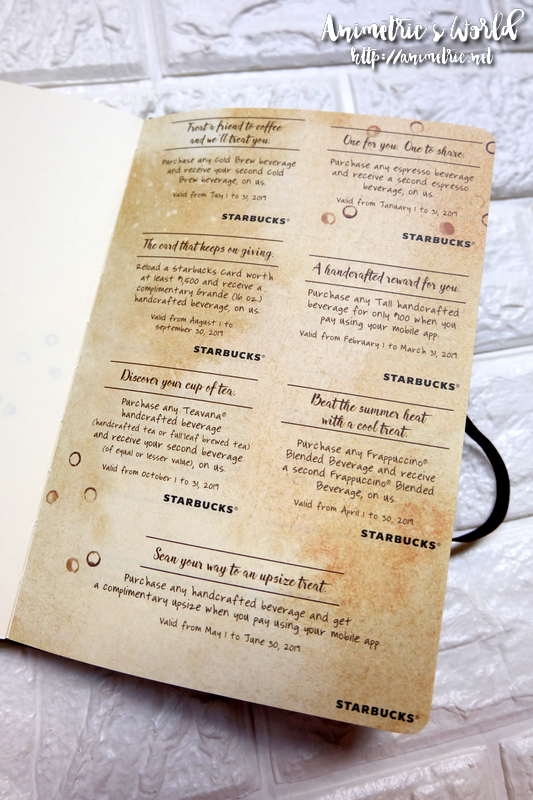 Animetric's World
http://animetric.net
Treat a friend to coffee
and we'll treat you.
Purchase any Cold Brew beverage
and receive your second Cold
Brew beverage, on us.
Valid from July 1 to 31, 2019
STARBUCKS®
One for you. One to share.
Purchase any espresso beverage
and receive a second espresso
beverage, on us.
Valid from January 1 to 31, 2019
STARBUCKS®
The card that keeps on giving.
Reload a Starbucks Card worth
at least ₱1,500 and receive a
complimentary Grande (16 oz)
handcrafted beverage, on us.
Valid from August 1 to
September 30, 2019
STARBUCKS®
A handcrafted reward for you.
Purchase any Tall handcrafted
beverage for only ₱100 when you
pay using your mobile app.
Valid from February 1 to March 31, 2019
STARBUCKS®
Discover your cup of tea.
Purchase any Teavana®
handcrafted beverage
(handcrafted tea or full leaf brewed tea)
and receive your second beverage
(of equal or lesser value), on us.
Valid from October 1 to 31, 2019
STARBUCKS®
Beat the summer heat
with a cool treat.
Purchase any Frappuccino®
Blended Beverage and receive
a second Frappuccino® Blended
Beverage, on us.
Valid from April 1 to 30, 2019
STARBUCKS®
Scan your way to an upsize treat.
Purchase any handcrafted beverage and get
a complimentary upsize when you pay using your mobile app.
Valid from May 1 to June 30, 2019
STARBUCKS®